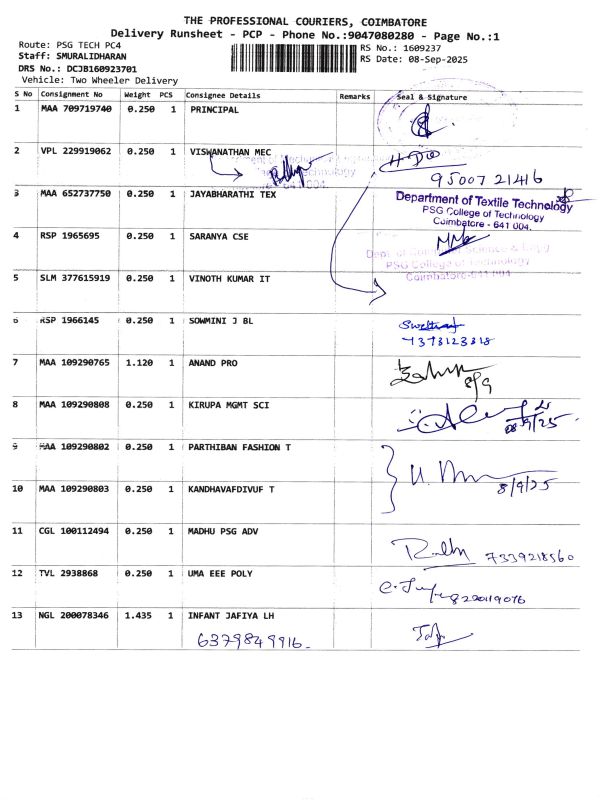 THE PROFESSIONAL COURIERS, COIMBATORE
Delivery Runsheet - PCP - Phone No.:9047080280 - Page No.:1
Route: PSG TECH PC4
RS No.: 1609237
Staff: SMURALIDHARAN
RS Date: 08-Sep-2025
DRS No.: DCJB160923701
Vehicle: Two Wheeler Delivery
S No Consignment No Weight PCS Consignee Details Remarks Seal & Signature
1 MAA 709719740 0.250 1 PRINCIPAL
2 VPL 229919062 0.250 1 VISWANATHAN MEC
9500721416
3 MAA 652737750 0.250 1 JAYABHARATHI TEX
Department of Textile Technology
PSG College of Technology
Coimbatore - 641 004.
4 RSP 1965695 0.250 1 SARANYA CSE
PSG College of Technology
Coimbatore-641 004
5 SLM 377615919 0.250 1 VINOTH KUMAR IT
6 RSP 1966145 0.250 1 SOWMINI J BL
7373123318
7 MAA 109290765 1.120 1 ANAND PRO
8/9
8 MAA 109290808 0.250 1 KIRUPA MGMT SCI
08/9/25
9 MAA 109290802 0.250 1 PARTHIBAN FASHION T
8/9/25
10 MAA 109290803 0.250 1 KANDHAVAFDIVUF T
11 CGL 100112494 0.250 1 MADHU PSG ADV
7339218560
12 TVL 2938868 0.250 1 UMA EEE POLY
13 NGL 200078346 1.435 1 INFANT JAFIYA LH
6379849916.